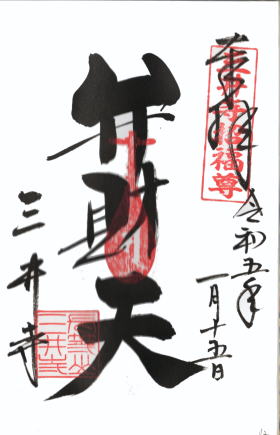 奉拝
令和五年
一月十五日
弁財天
三井寺